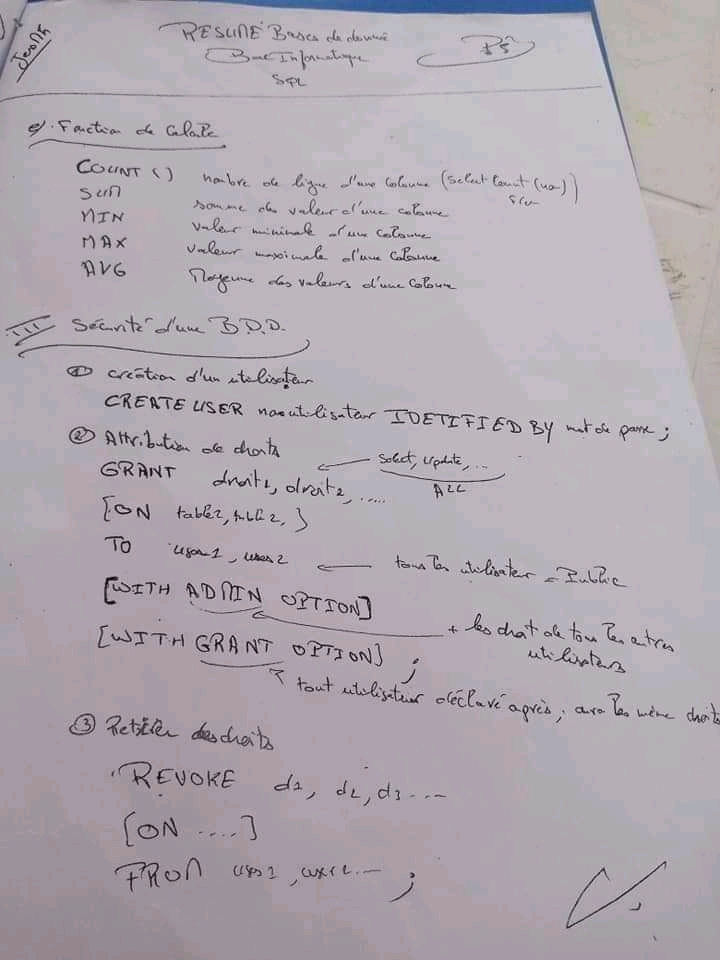 RESUMÉ Bases de donné
Bac Informatique
SQL
P5
e). Fonction de Calcul
COUNT () nombre de ligne d'une colonne (Select Count (nom))
SUM somme des valeur d'une colonne
MIN valeur minimale d'une colonne
MAX valeur maximale d'une colonne
AVG Moyenne des valeurs d'une colonne
III Sécurité d'une B.D.D.
① création d'un utilisateur
CREATE USER nom utilisateur IDETIFIED BY mot de passe ;
② Attribution de droits
GRANT droit1, droit2, ..... ← select, update, ...
ALL
[ON table1, table2, ]
TO user1, user2 ← tous les utilisateur = Public
[WITH ADMIN OPTION] ← + les droit de tous les autres
utilisateurs
[WITH GRANT OPTION] ;
tout utilisateur déclaré après, aura les même droits
③ Retirer des droits
REVOKE d1, d2, d3 ....
[ON ....]
FROM user1, user2 ... ;